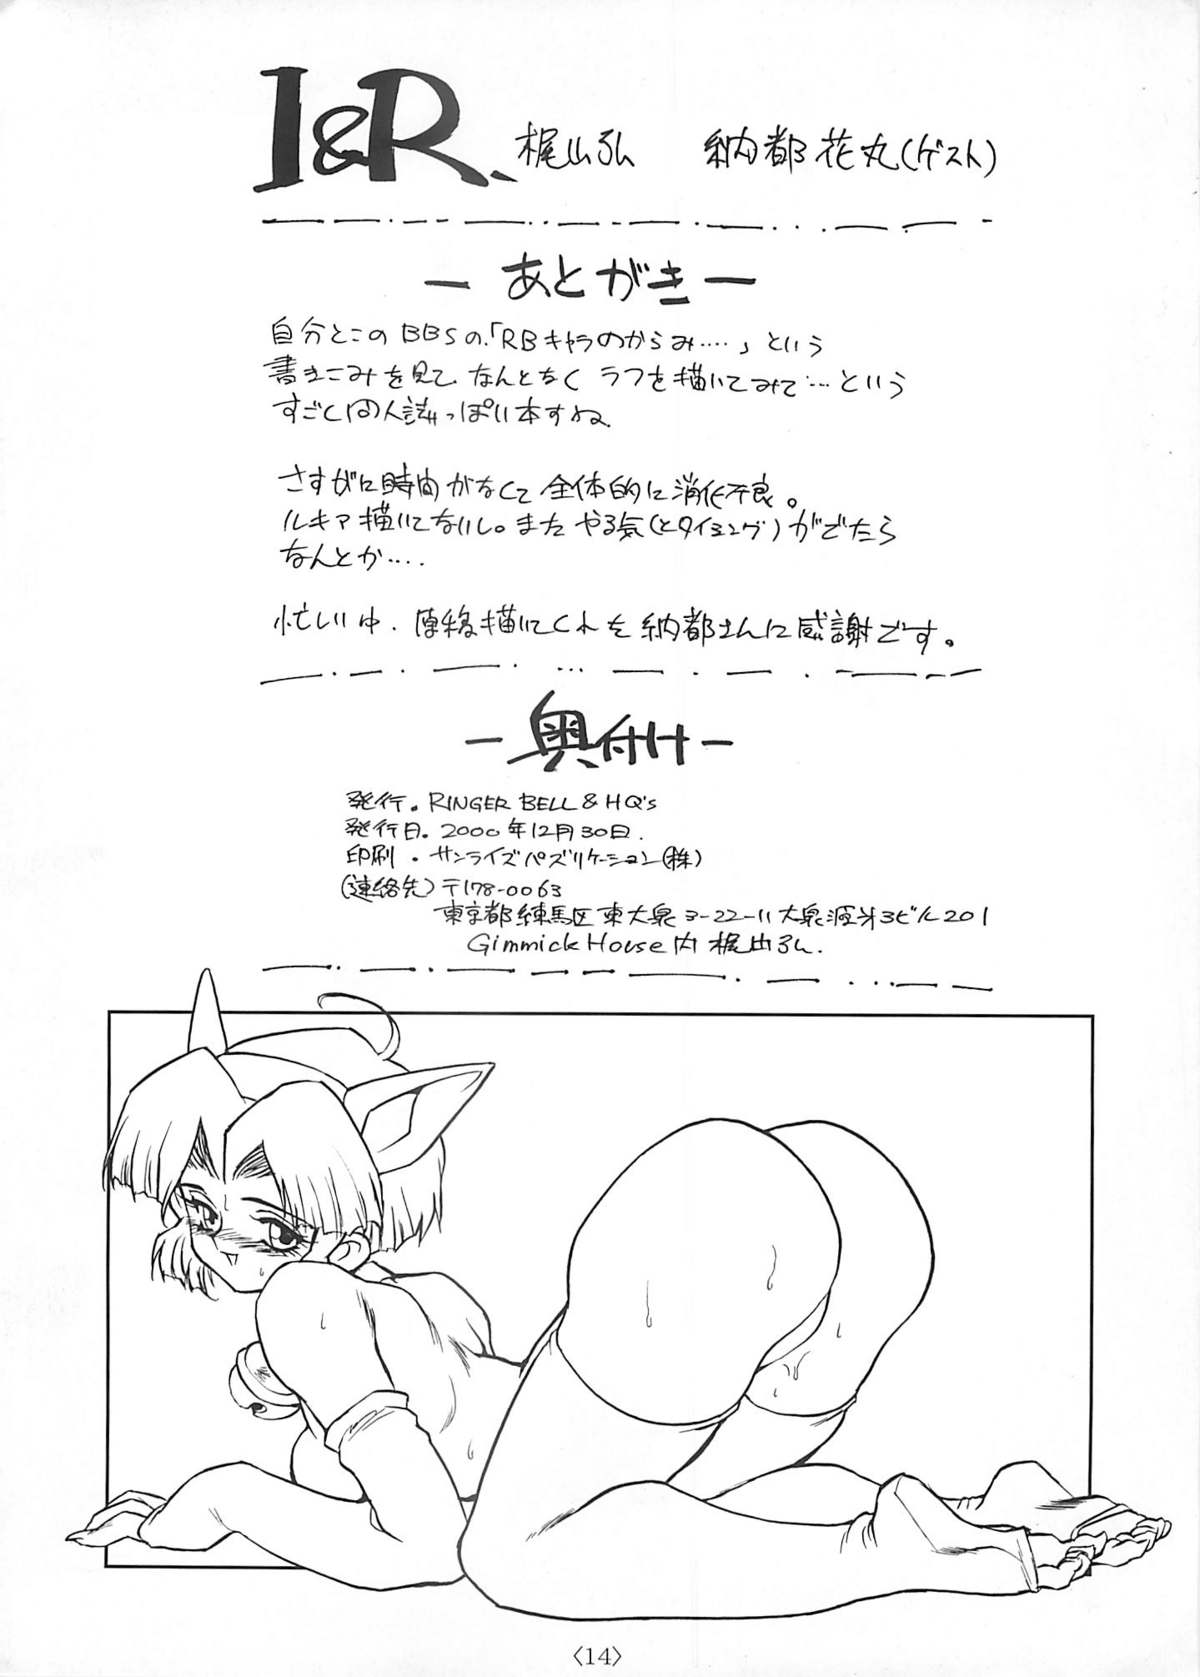 I&R
梶山弘 納都花丸(ゲスト)
— あとがき —
自分とこのBBSの、「RBキャラのからみ‥‥」という
書きこみを見て、なんとなくラフを描いてみて‥‥という
すごく同人誌っぽい本すね
さすがに時間がなくて全体的に消化不良。
ルキア描いてないし。またやる気(とタイミング)がでたら
なんとか‥‥
忙しい中、原稿描いてくれた納都さんに感謝です。
— 奥付け —
発行。RINGER BELL & HQ's
発行日。2000年12月30日.
印刷・サンライズパブリケーション(株)
(連絡先)〒178-0063
東京都練馬区東大泉3-22-11大泉源牙3ビル201
Gimmick House内 梶山弘.
〈14〉